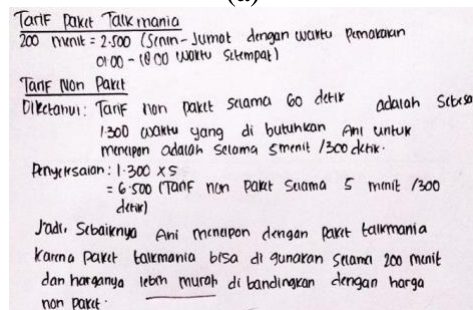 Tarif Paket Talkmania
200 menit = 2.500 (Senin-Jumat dengan waktu pemakaian
01.00 - 18.00 waktu setempat)
Tarif Non Paket
Diketahui: Tarif non paket selama 60 detik adalah Sebesa
1.300 waktu yang di butuhkan Ani untuk
menelpon adalah selama 5menit /300 detik.
Penyelesaian : 1.300 x 5
= 6.500 (Tarif non paket Selama 5 menit /300
detik)
Jadi, Sebaiknya Ani menelpon dengan paket talkmania
karena paket talkmania bisa di gunakan selama 200 menit
dan harganya lebih murah di bandingkan dengan harga
non paket.